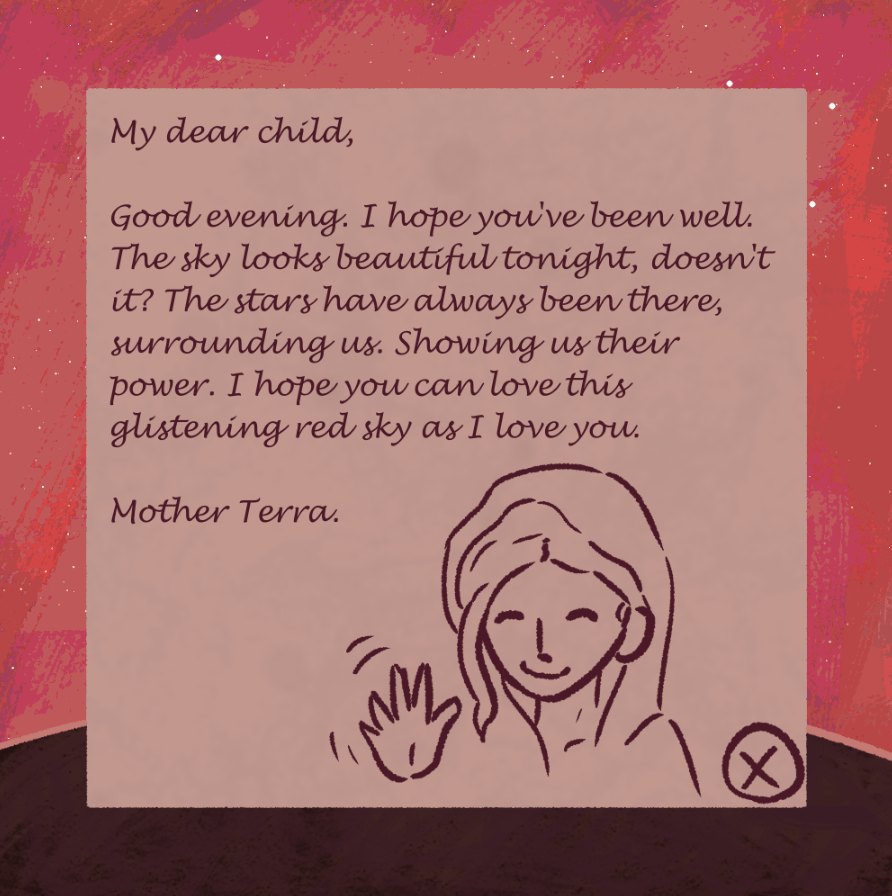 My dear child,
Good evening. I hope you've been well.
The sky looks beautiful tonight, doesn't
it? The stars have always been there,
surrounding us. Showing us their
power. I hope you can love this
glistening red sky as I love you.
Mother Terra.